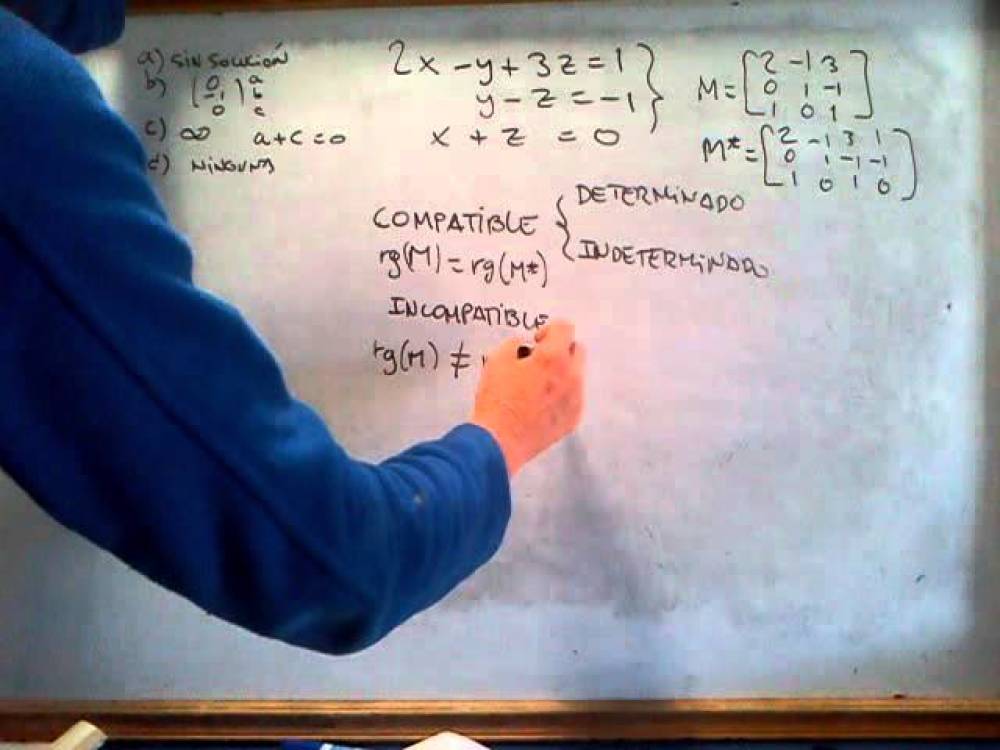 a) SIN SOLUCIÓN
b) (0 -1 0) a b c
c) ∞ a+c=0
d) NINGUNA
2x - y + 3z = 1
y - z = -1
x + z = 0
M = [2 -1 3
0 1 -1
1 0 1]
M* = [2 -1 3 1
0 1 -1 -1
1 0 1 0]
COMPATIBLE { DETERMINADO
INDETERMINADO
rg(M) = rg(M*)
INCOMPATIBLE
rg(M) ≠